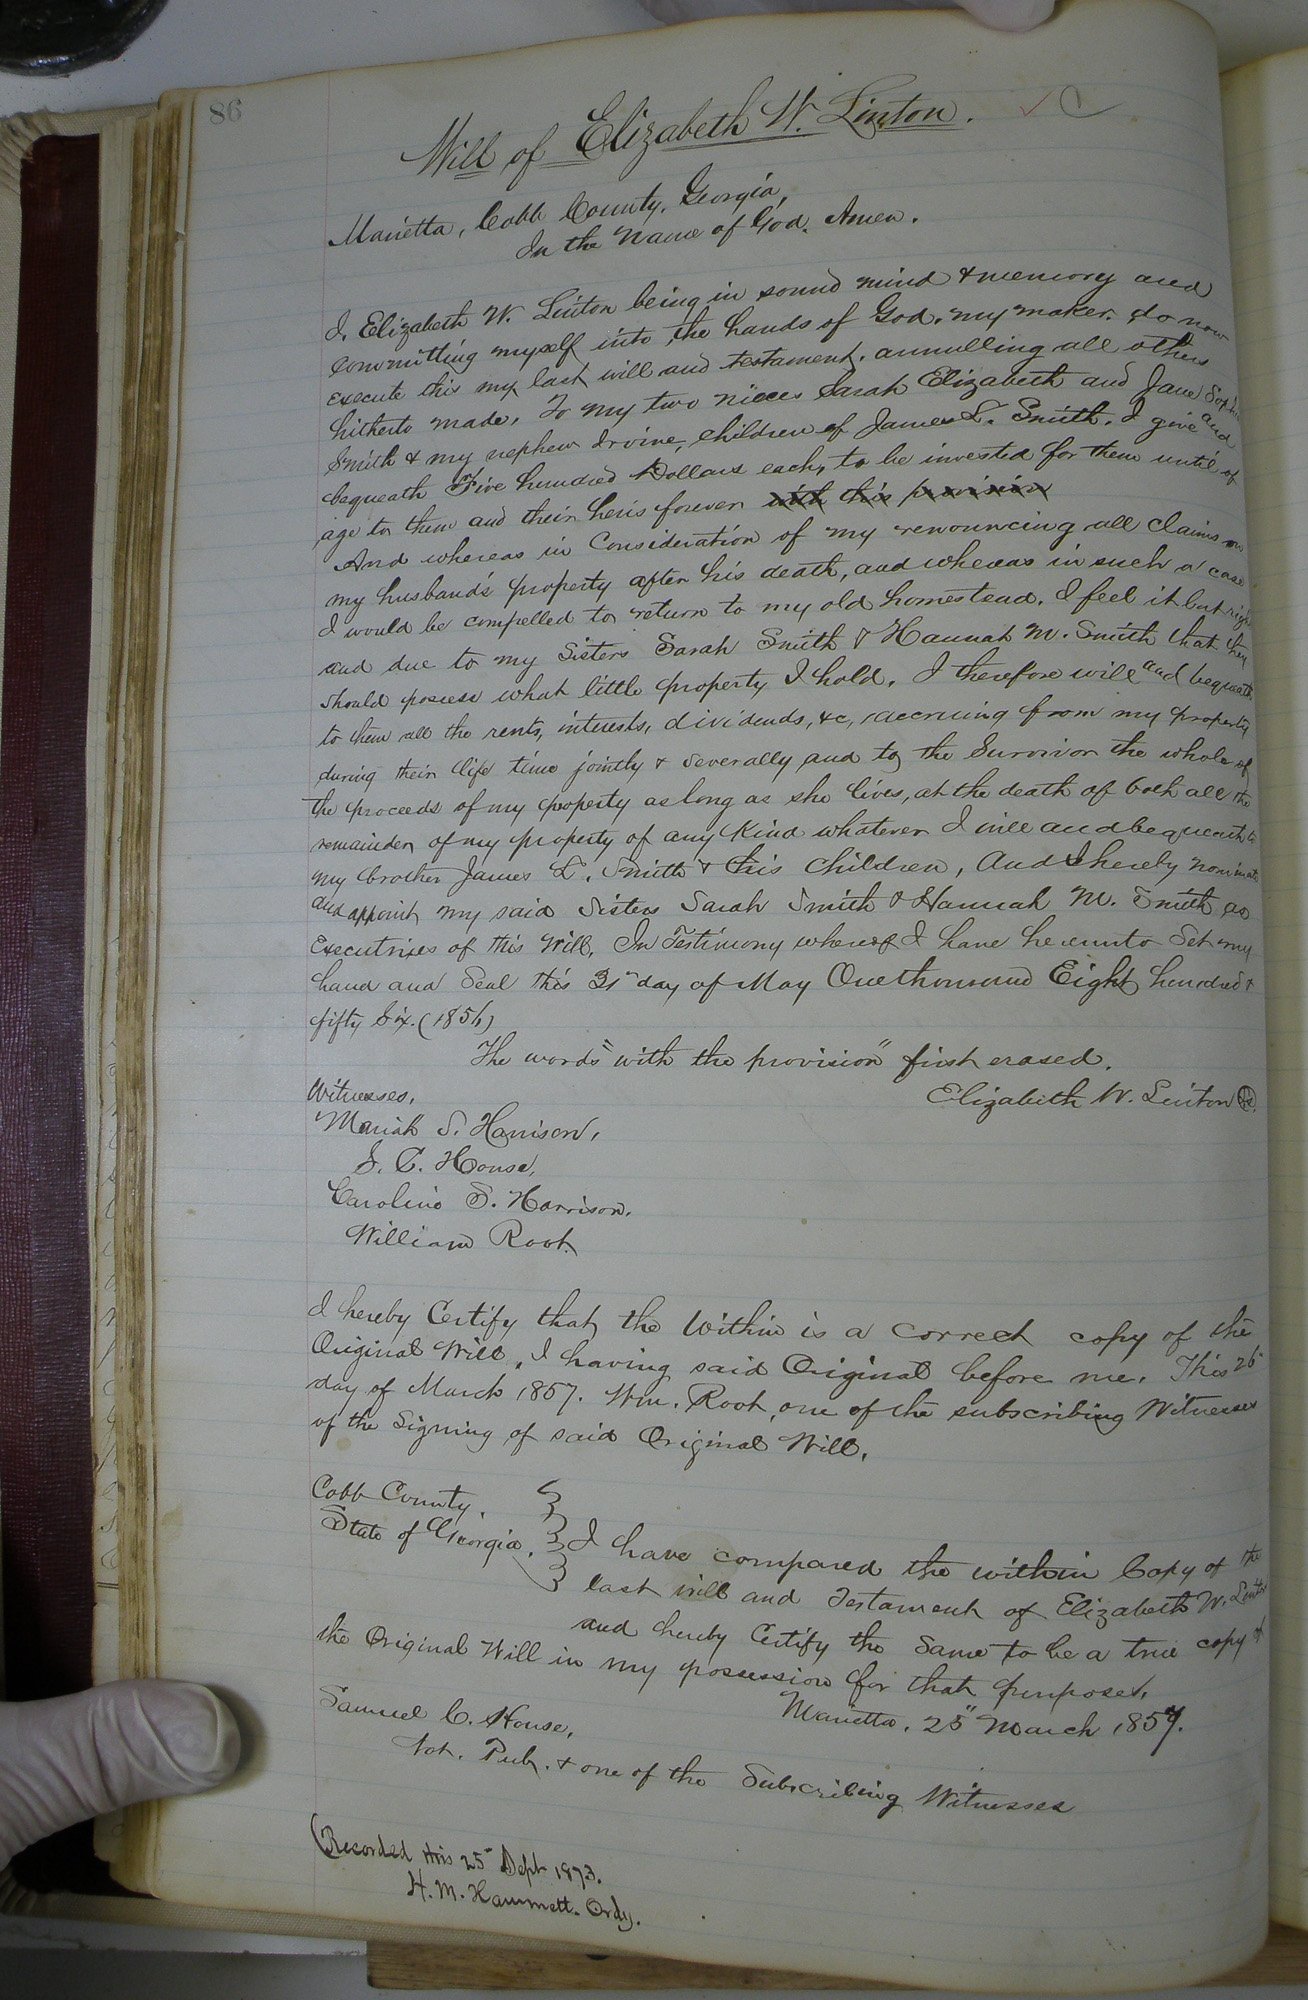 86
Will of Elizabeth W. Linton.
Marietta, Cobb County, Georgia,
In the Name of God, Amen.
I, Elizabeth W. Linton being in sound mind & memory and
committing myself into the hands of God, my maker, do now
execute this my last will and testament, annulling all others
hitherto made, To my two nieces Sarah Elizabeth and Jane Sophia
Smith & my nephew Irvine, children of James L. Smith, I give and
bequeath Five hundred Dollars each, to be invested for them until of
age to them and their heirs forever with this provision
And whereas in Consideration of my renouncing all claims on
my husband's property after his death, and whereas in such a case
I would be compelled to return to my old homestead, I feel it but right
and due to my Sisters Sarah Smith & Hannah M. Smith that they
should possess what little property I hold, I therefore will and bequeath
to them all the rents, interests, dividends, &c, accruing from my property
during their life time jointly & severally and to the Survivor the whole of
the proceeds of my property as long as she lives, at the death of both all the
remainder of my property of any Kind whatever I will and bequeath to
my brother James L. Smith & his children, And I hereby nominate
and appoint my said Sisters Sarah Smith & Hannah M. Smith as
Executrixes of this Will, In Testimony whereof I have hereunto Set my
hand and Seal this 31" day of May One thousand Eight hundred &
fifty Six. (1856)
The words "with the provision" first erased.
Witnesses. Elizabeth W. Linton
Mariah S. Harrison,
S. C. House,
Caroline S. Harrison.
William Root.
I hereby Certify that the Within is a correct copy of the
Original Will, I having said Original before me. This 26"
day of March 1857. Wm. Root, one of the subscribing Witnesses
of the Signing of said Original Will.
Cobb County.
State of Georgia. I have compared the within Copy of the
last will and Testament of Elizabeth W. Linton
and hereby Certify the Same to be a true copy of
the Original Will in my possession for that purpose.
Marietta, 25" March 1857.
Samuel C. House,
Not. Pub. & one of the Subscribing Witnesses
(Recorded this 25" Sept 1873.
H. M. Hammett. Ordy.